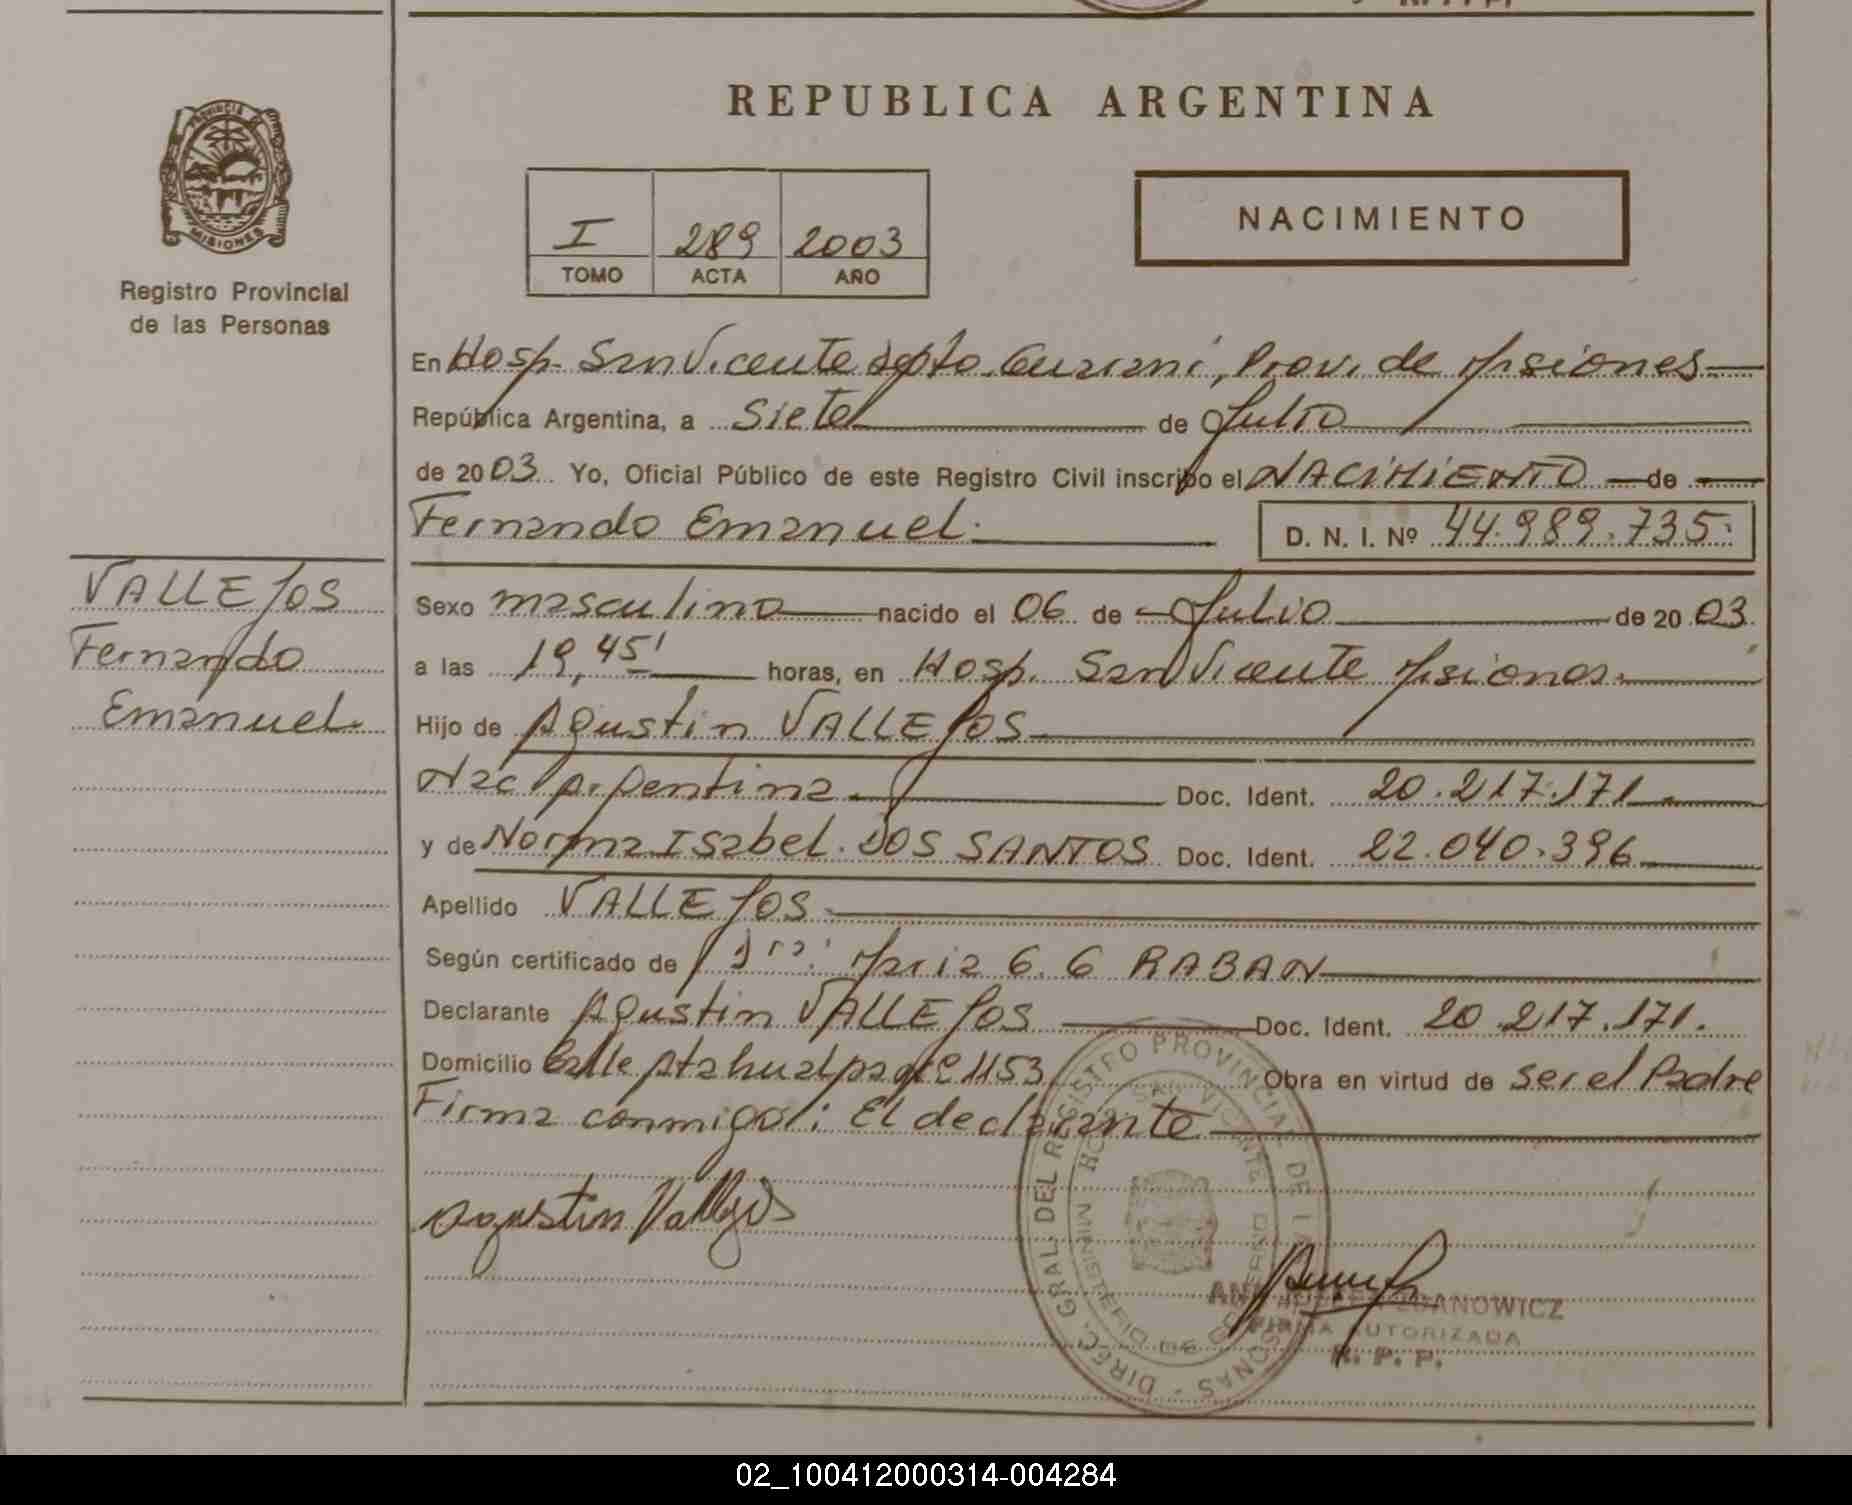 REPUBLICA ARGENTINA
PROVINCIA DE
MISIONES
Registro Provincial
de las Personas
I 289 2003
TOMO ACTA AÑO
NACIMIENTO
En Hosp. San Vicente depto. Guarani, Prov. de Misiones
República Argentina, a Siete de Julio
de 2003. Yo, Oficial Público de este Registro Civil inscribo el NACIMIENTO de
Fernando Emanuel.
D. N. I. Nº 44.989.735.
VALLEJOS
Fernando
Emanuel.
Sexo masculino nacido el 06 de Julio de 2003.
a las 19,45' horas, en Hosp. San Vicente Misiones.
Hijo de Agustin VALLEJOS
Nac Argentina. Doc. Ident. 20.217.171
y de Norma Isabel. DOS SANTOS Doc. Ident. 22.040.396
Apellido VALLEJOS.
Según certificado de Maria G. G RABAN
Declarante Agustin VALLEJOS Doc. Ident. 20.217.171.
Domicilio Calle Atahualpa 1153 Obra en virtud de ser el Padre
Firma conmigo: El declarante
Agustin Vallejos
DIREC. GRAL. DEL REGISTRO PROVINCIAL DE LAS PERSONAS
HOSP. SAN VICENTE
MINISTERIO DE GOBIERNO
FIRMA AUTORIZADA
R. P. P.
02_100412000314-004284